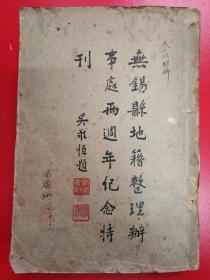 無錫縣地籍整理辦
事處兩週年紀念特
刊
吳敬恒題